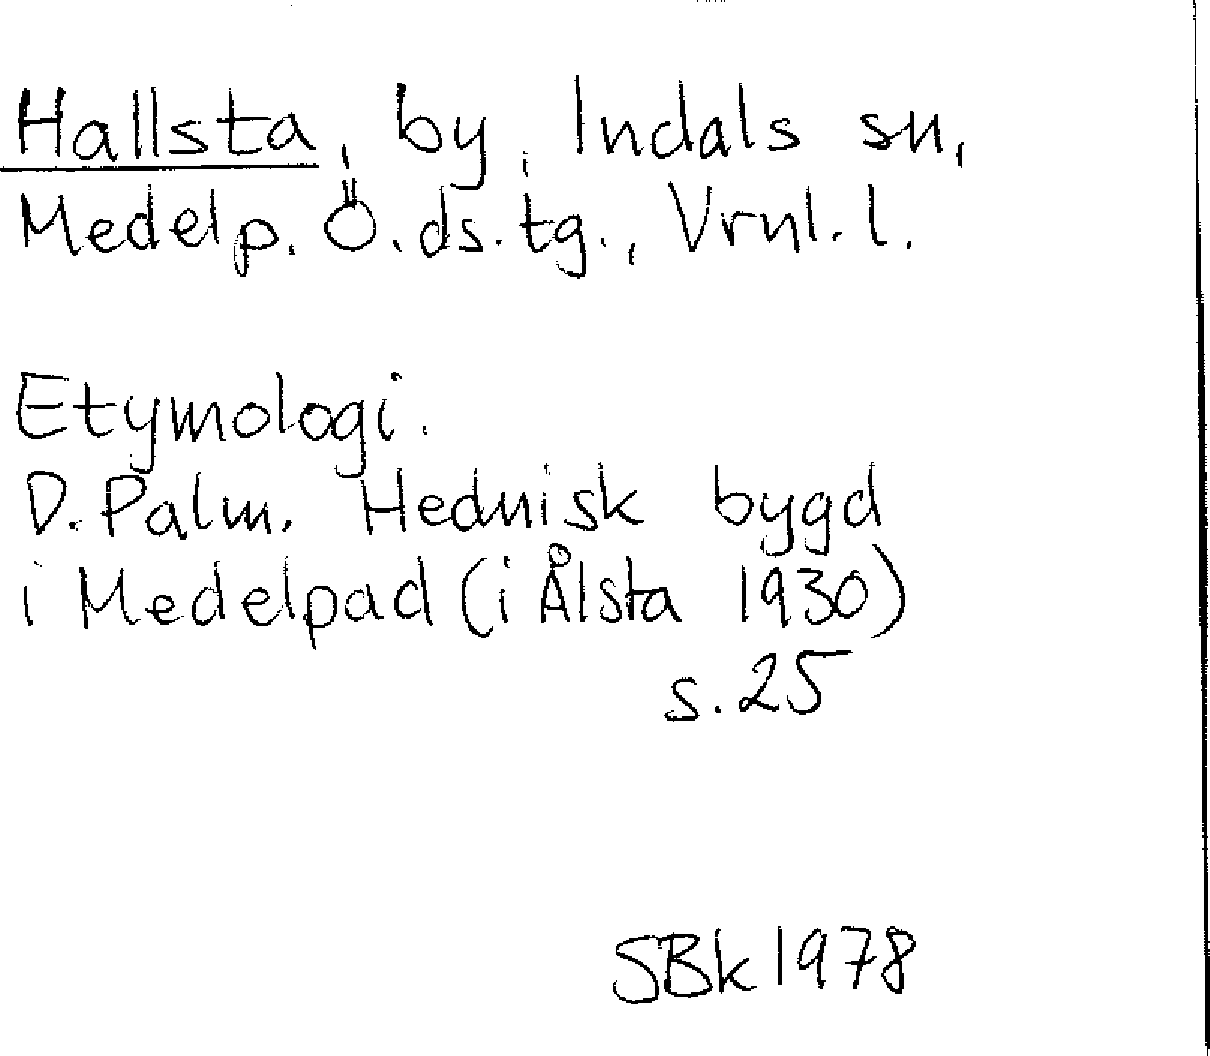 Hallsta, by, Indals sn,
Medelp. Ö. ds. tg., Vrnl. l.
Etymologi.
D. Palm. Hednisk bygd
i Medelpad (i Ålsta 1930)
s. 25
SBk 1978